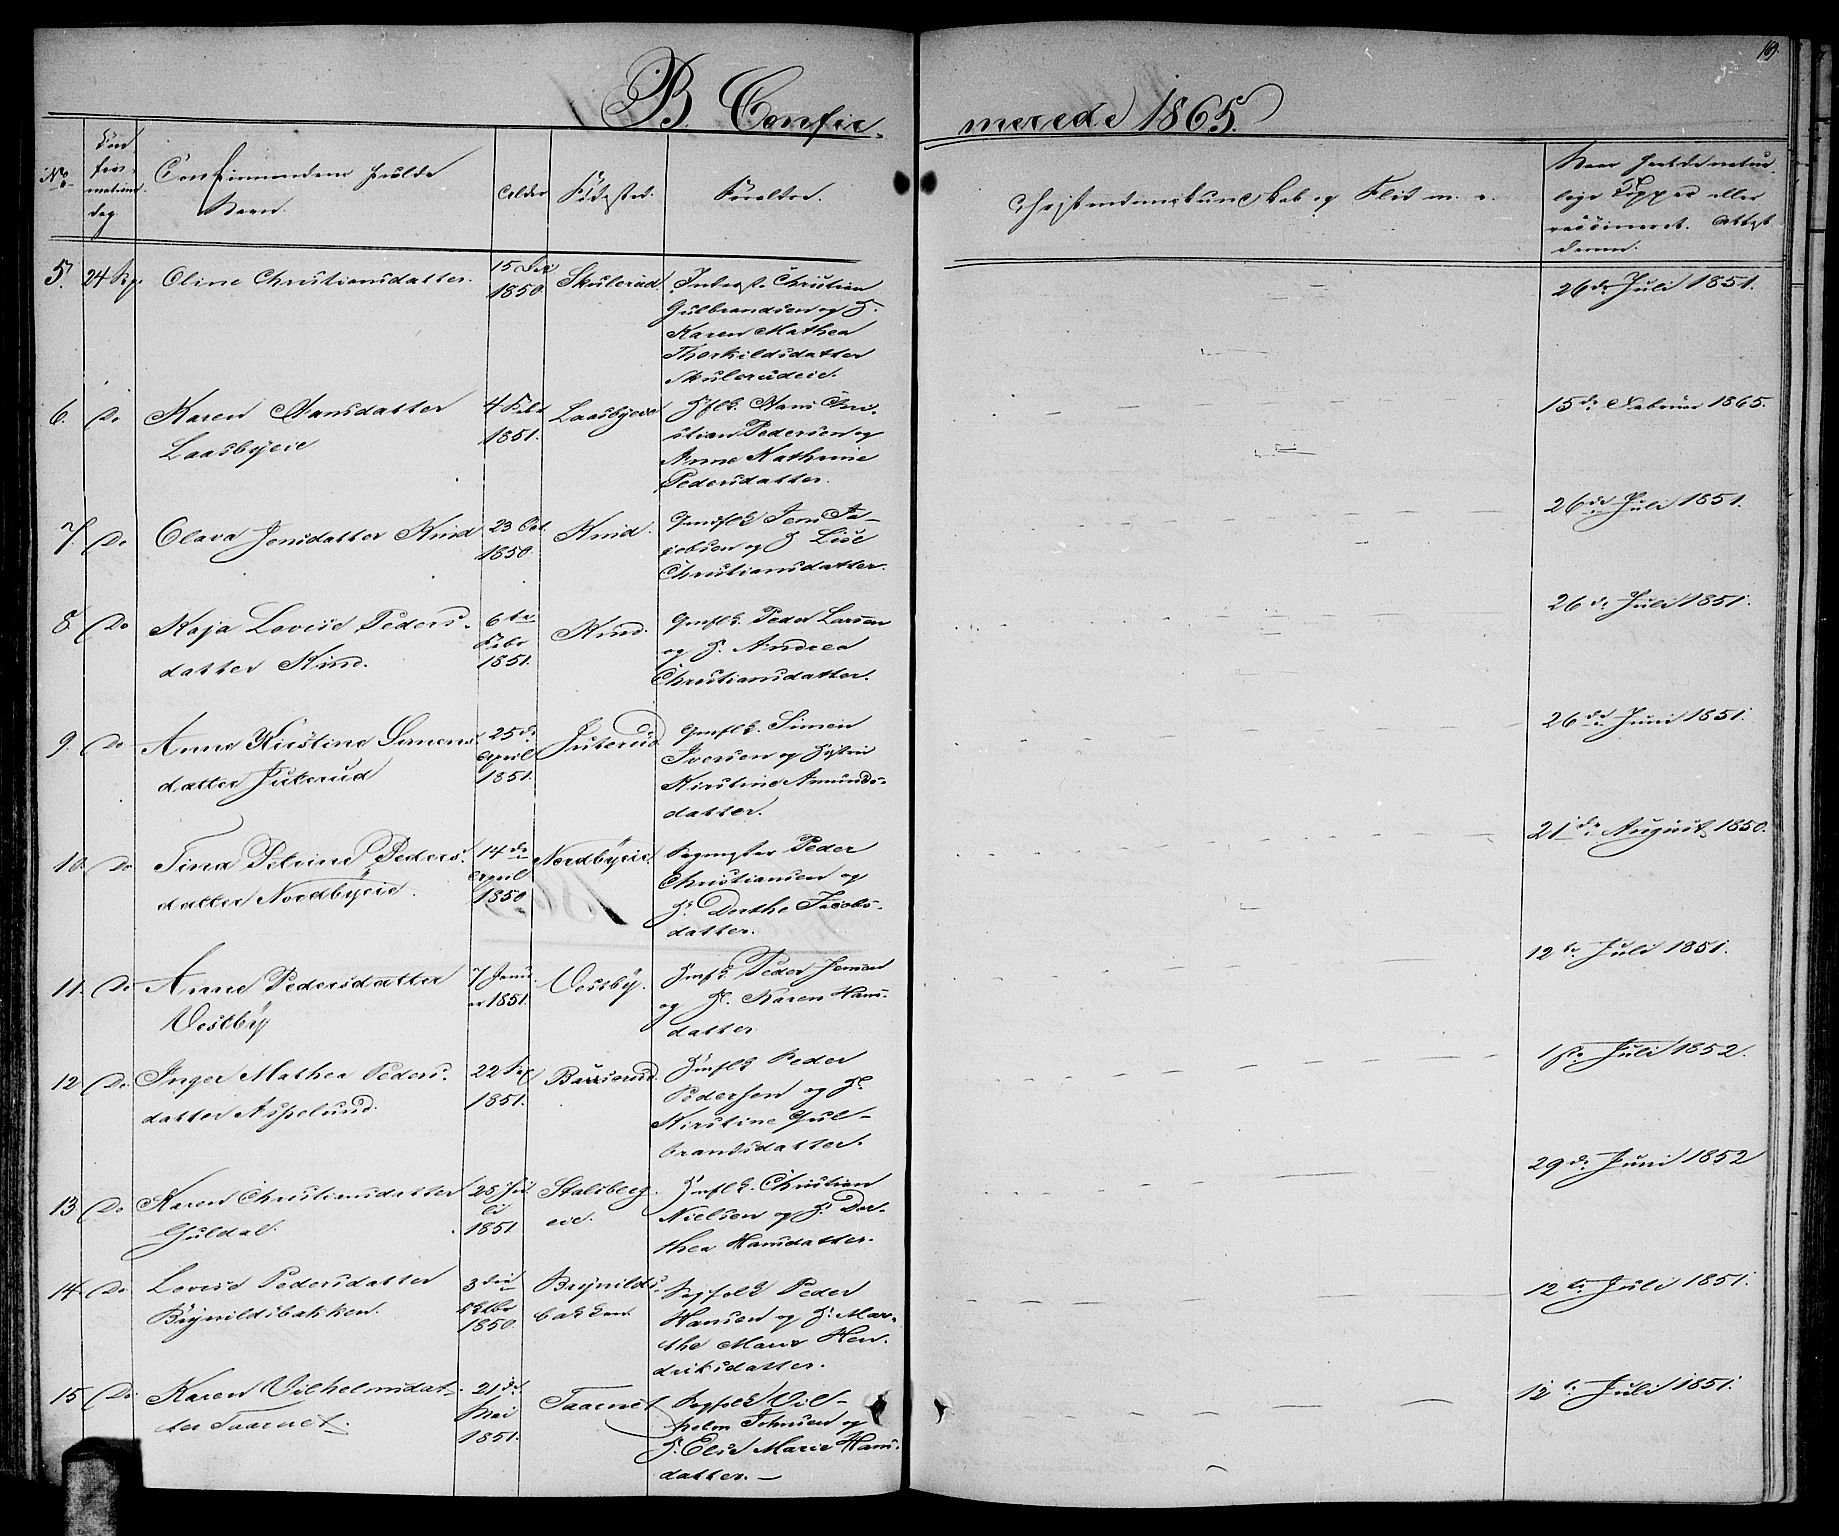 B. Confir-
merede 1865.
No
Con
fir-
mations
dag
Confirmandens fulde
Navn.
Alder
Fødested.
Forældre.
Christendomskundskab og Flid m. v.
Naar havt de natur-
lige Kopper eller
vaccineret. Attest
derom.
5. 24 Sep. Oline Christiansdatter. 15 Dec 1850. Skulerud. Christian
Gulbrandsen og H.
Karen Mathea
Thorkildsdatter
Skulerudeie.
26de Juli 1851.
6. Do Karen Hansdatter
Laasbyeie
4 Febr
1851.
Laasbyeie
Hans Chri-
stian Pedersen og
Anne Kathrine
Pedersdatter.
15de Februar 1865.
7. Do Olava Jensdatter Kind 23 Oct.
1850.
Kind.
Gmfk Jens Ja-
cobsen og H. Lise
Christiansdatter.
26de Juli 1851.
8. Do Kaja Lovise Peders-
datter Kind.
6te
Febr
1851.
Kind.
Gmfk. Peder Larsen
og H. Andrea
Christiansdatter.
26de Juli 1851.
9. Do Anne Kirstine Simens
datter Juterud
25de
April
1851.
Juterud
Gmfk. Simen
Iversen og Hustru
Kirstine Amunds-
datter.
26de Juni 1851.
10. Do Tina Petrine Peders-
datter Nordbyeie.
14de
April
1850
Nordbyeie.
Peder
Christiansen og
H. Dorthe Jacobs-
datter.
21de August 1850.
11. Do Anne Pedersdatter
Vestby
7 Janu
ar 1851.
Vestby.
Peder Jensen
og H. Karen Hans-
datter
12te Juli 1851.
12. Do. Inger Mathea Peders-
datter Aspelund.
22 Sep
1851.
Bakkerud.
Peder
Pedersen og H.
Kirstine Gul-
brandsdatter.
1ste Juli 1852.
13 Do Karen Christiansdatter
Guldal.
25 Ju
li
1851
Stalsberg-
eie.
Christian
Nielsen og H. Dor-
thea Hansdatter.
29de Juni 1852
14. Do Lovise Pedersdatter
Brynildsbakken.
3die
Octbr
1850.
Brynilds-
bakken.
Peder
Hansen og H. Mar-
the Marie Hen-
driksdatter.
12te Juli 1851.
15 Do. Karen Vilhelmsdat-
ter Taarnet.
21de
Mai
1851.
Taarnet
Vil-
helm Johnsen og
H. Elise Marie Hans-
datter.
12te Juli 1851.